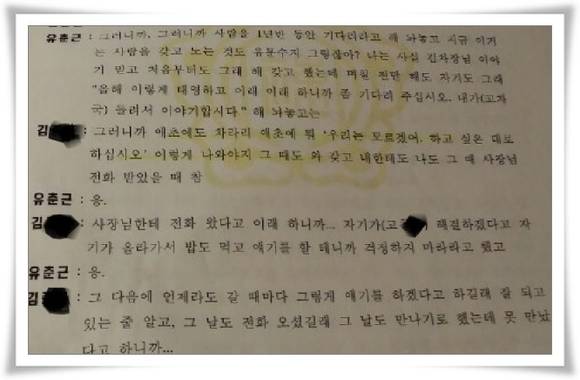 유춘근 : 그러니까, 그러니까 사람을 1년반 동안 기다리라고 해 놔놓고 지금 이거
는 사람을 갖고 노는 것도 유분수지 그렇잖아? 나는 사실 김차장님 이야
기 믿고 처음부터도 그래 해 갖고 했는데 며칠 전만 해도 자기도 그래
"올해 이렇게 태영하고 이래 이래 하니까 좀 기다려 주십시오. 내가(고차
국) 들려서 이야기합시다." 해 놔놓고는
김 : 그러니까 애초에도 차라리 애초에 뭐 '우리는 모르겠어. 하고 싶은 대로
하십시오' 이렇게 나와야지 그 때도 와 갖고 내한테도 나도 그 때 사장님
전화 받았을 때 참
유춘근 : 응.
김 : 사장님한테 전화 왔다고 이래 하니까... 자기가(고 ) 해결하겠다고 자
기가 올라가서 밥도 먹고 얘기를 할 테니까 걱정하지 마라라고 했고
유춘근 : 응.
김 : 그 다음에 언제라도 갈 때마다 그렇게 얘기를 하겠다고 하길래 잘 되고
있는 줄 알고, 그 날도 전화 오셨길래 그 날도 만나기로 했는데 못 만났
다고 하니까...